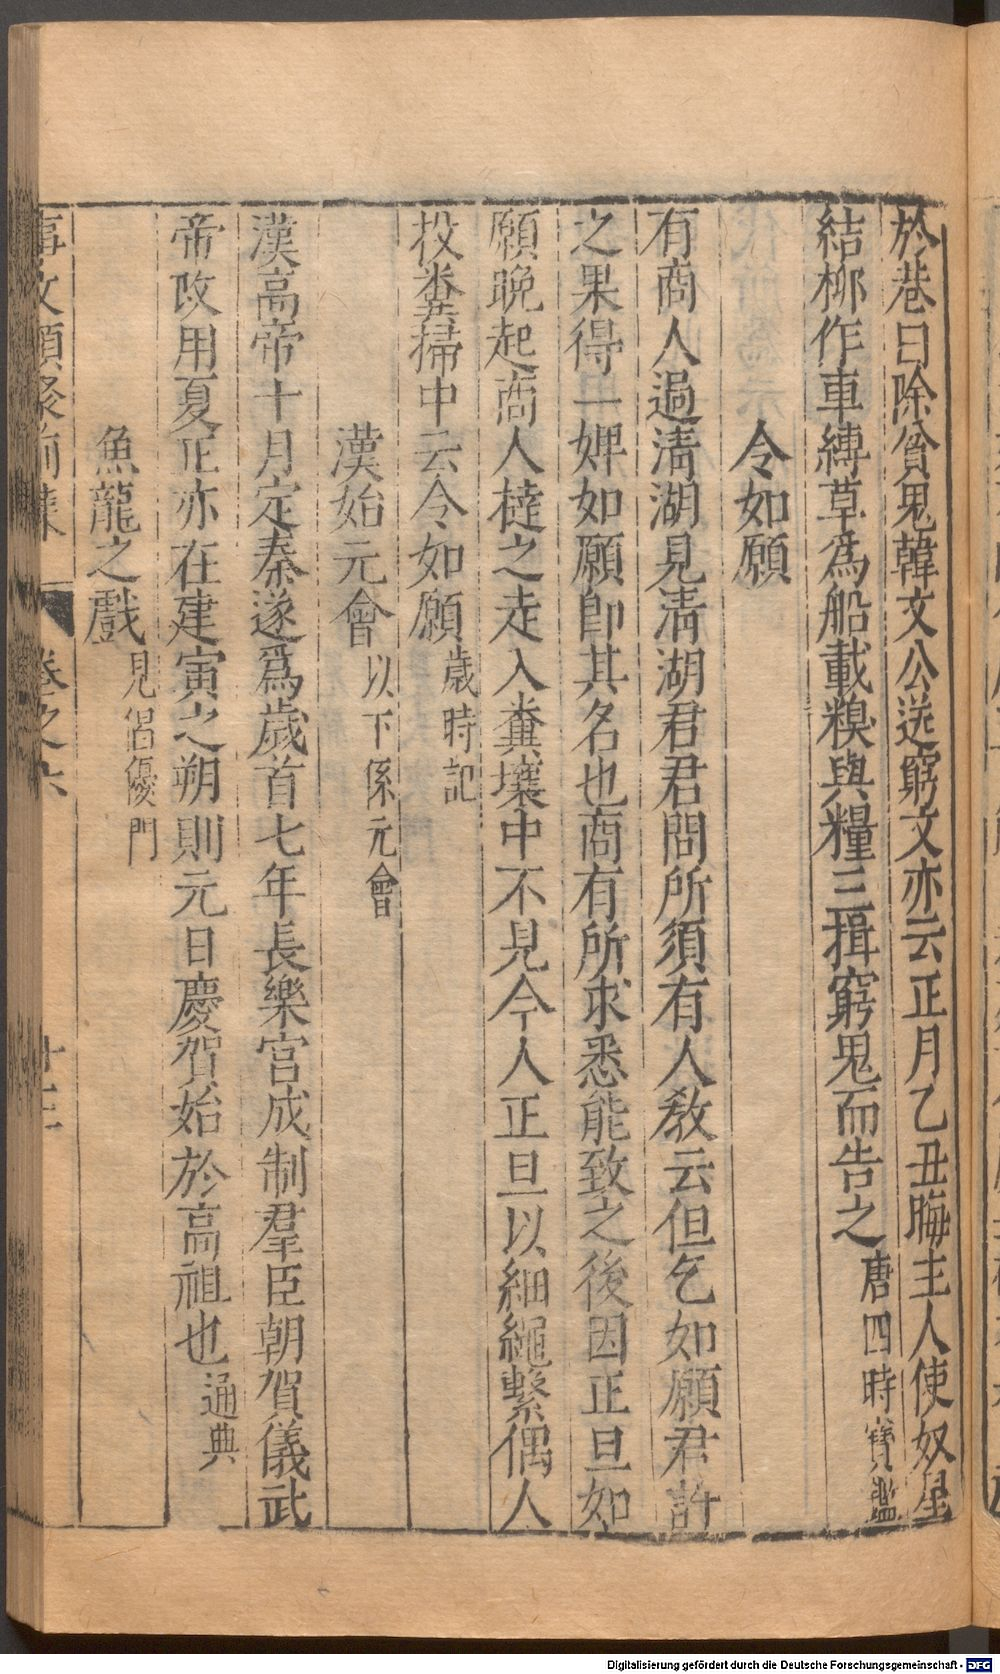 於巷曰除貧鬼韓文公送窮文亦云正月乙丑晦主人使奴星
結柳作車縛草爲船載糗與糧三揖窮鬼而告之唐四時寶鑑
令如願
有商人過淸湖見淸湖君君問所須有人敎云但乞如願君許
之果得一婢如願卽其名也商有所求悉能致之後因正旦如
願晚起商人撻之走入糞壤中不見今人正旦以細繩繫偶人
投糞掃中云令如願歲時記
漢始元會以下係元會
漢高帝十月定秦遂爲歲首七年長樂宮成制羣臣朝賀儀武
帝改用夏正亦在建寅之朔則元日慶賀始於高祖也通典
魚龍之戲見倡優門
事文類聚前集 卷之六 十三
Digitalisierung gefördert durch die Deutsche Forschungsgemeinschaft - DFG